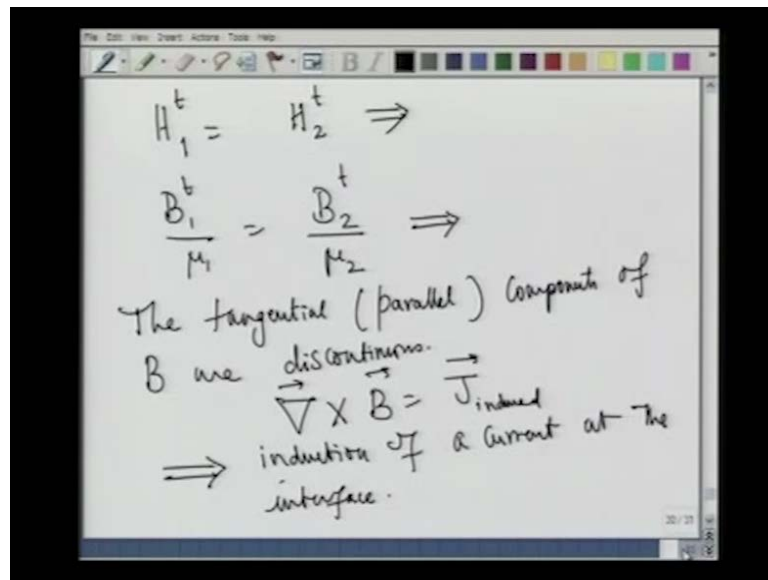 File Edit View Insert Actions Tools Help
H₁ᵗ = H₂ᵗ ⇒
B₁ᵗ/μ₁ = B₂ᵗ/μ₂ ⇒
The tangential (parallel) components of
B are discontinuous.
∇⃗ × B⃗ = J⃗induced
⇒ induction of a current at the
interface.